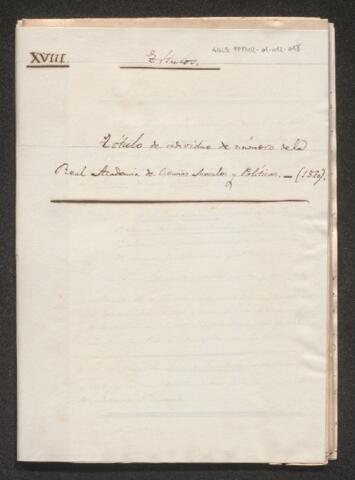 XVIII.
Títulos.
Título de individuo de número de la
Real Academia de Ciencias Morales y Políticas. — (1820).